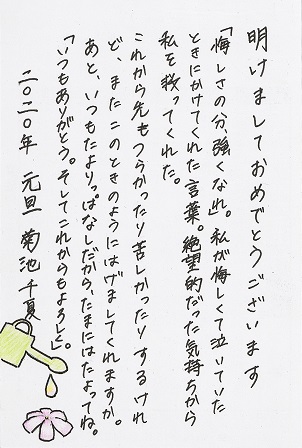 明けましておめでとうございます
「悔しさの分、強くなれ」。私が悔しくて泣いていた
ときにかけてくれた言葉。絶望的だった気持ちから
私を救ってくれた。
これから先もつらかったり苦しかったりするけれ
ど、またこのときのようにはげましてくれますか。
あと、いつもたよりっぱなしだから、たまにはたよってね。
「いつもありがとう。そしてこれからもよろしく」。
二〇二〇年 元旦 菊池千夏